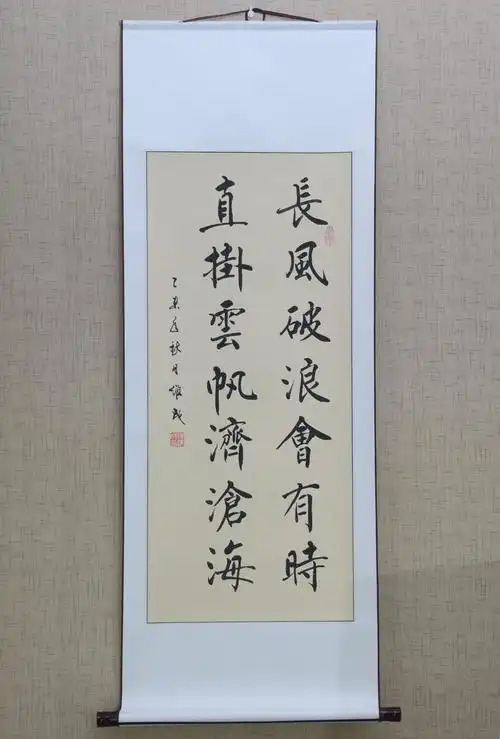 長風破浪會有時
直掛雲帆濟滄海
秋月